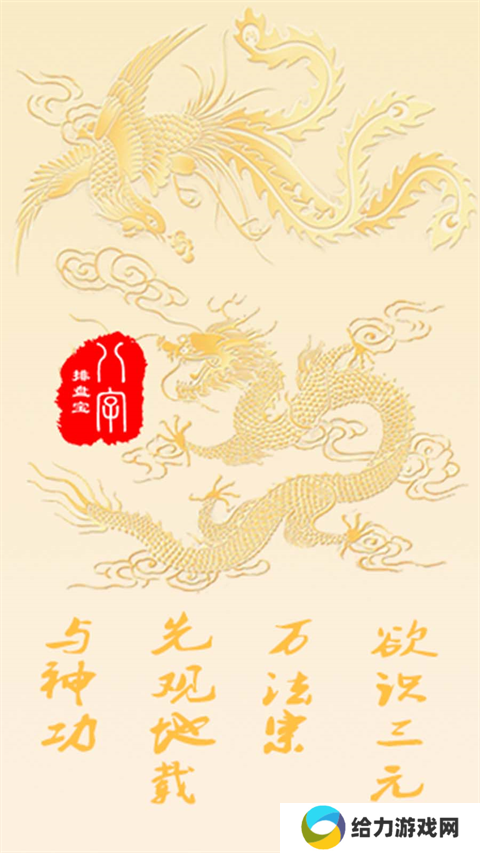 八字
排盘宝
欲识三元
万法宗
先观地载
与神功
给力游戏网